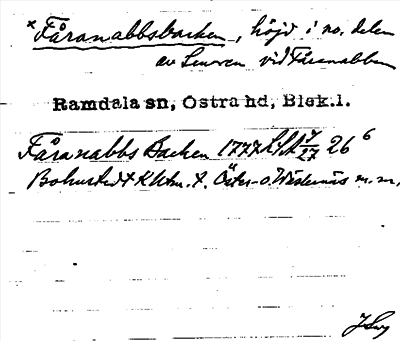 *Fåranabbsbacken, höjd i nö. delen
av Senoren vid Fåranabben
Ramdala sn, Östra hd, Blek.l.
Fåranabbs Backen 1777 LSA 7/27 26⁶
Bohustedt Khtm. t. Öster- o. Westernäs m. m.